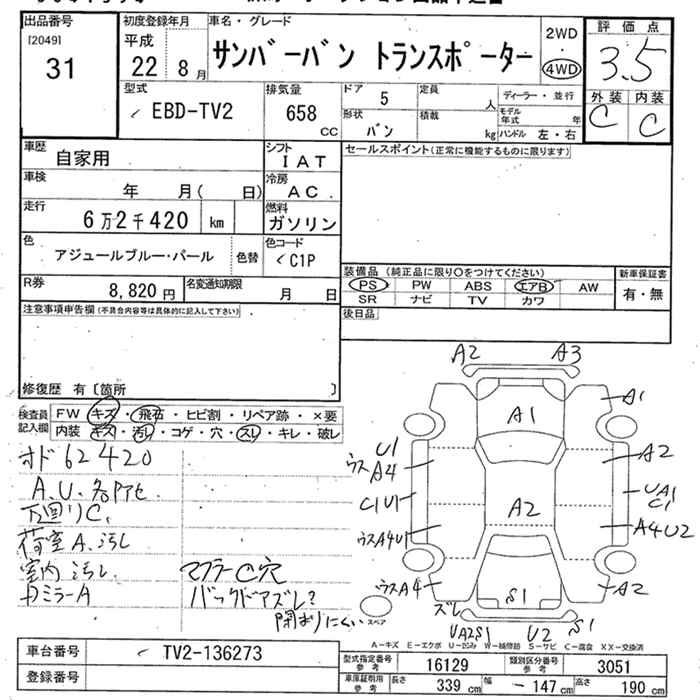 出品番号
[2049]
31
初度登録年月
平成
22 8月
車名・グレード
サンバーバン トランスポーター
2WD
・
4WD
評価点
3.5
外装 内装
C C
型式
EBD-TV2
排気量
658
cc
ドア 5
形状 バン
定員 人
積載 kg
ディーラー・並行
モデル年式 年
ハンドル 左・右
車歴 自家用
シフト
IAT
セールスポイント(正常に機能するものに限ります)
車検 年 月( 日)
冷房
AC
走行
6万2千420 km
燃料
ガソリン
色
アジュールブルー・パール
色替
色コード
C1P
R券
8,820円
名変通知期限
月 日
装備品(純正品に限り○をつけてください)
PS PW ABS エアB AW
SR ナビ TV カワ
新車保証書
有・無
後日品
注意事項申告欄(不具合内容等は具体的に記入して下さい)
修復歴 有〔箇所 〕
検査員記入欄
FW キズ・飛石・ヒビ割・リペア跡・×要
内装 キズ・汚レ・コゲ・穴・スレ・キレ・破レ
オド62420
A.U.各所アセ
下回リC.
荷室A.汚レ
室内汚レ.
Dミラー A
マフラーC穴
バックドアズレ?
閉まりにくい
A2 A3
A1
A1
U1
ウスA4
A2
C1U1
A2
UA1
C1
ウスA4U1
A4U2
ウスA4
ズレ
S1
A2
UA2S1
U2
S1
スペア
A-キズ E-エクボ U-凹み W-補修跡 S-サビ C-腐食 XX-交換済
車台番号
TV2-136273
登録番号
型式指定番号 参考
16129
類別区分番号 参考
3051
車庫証明用 参考
長さ 339cm
幅 -147cm
高さ 190cm